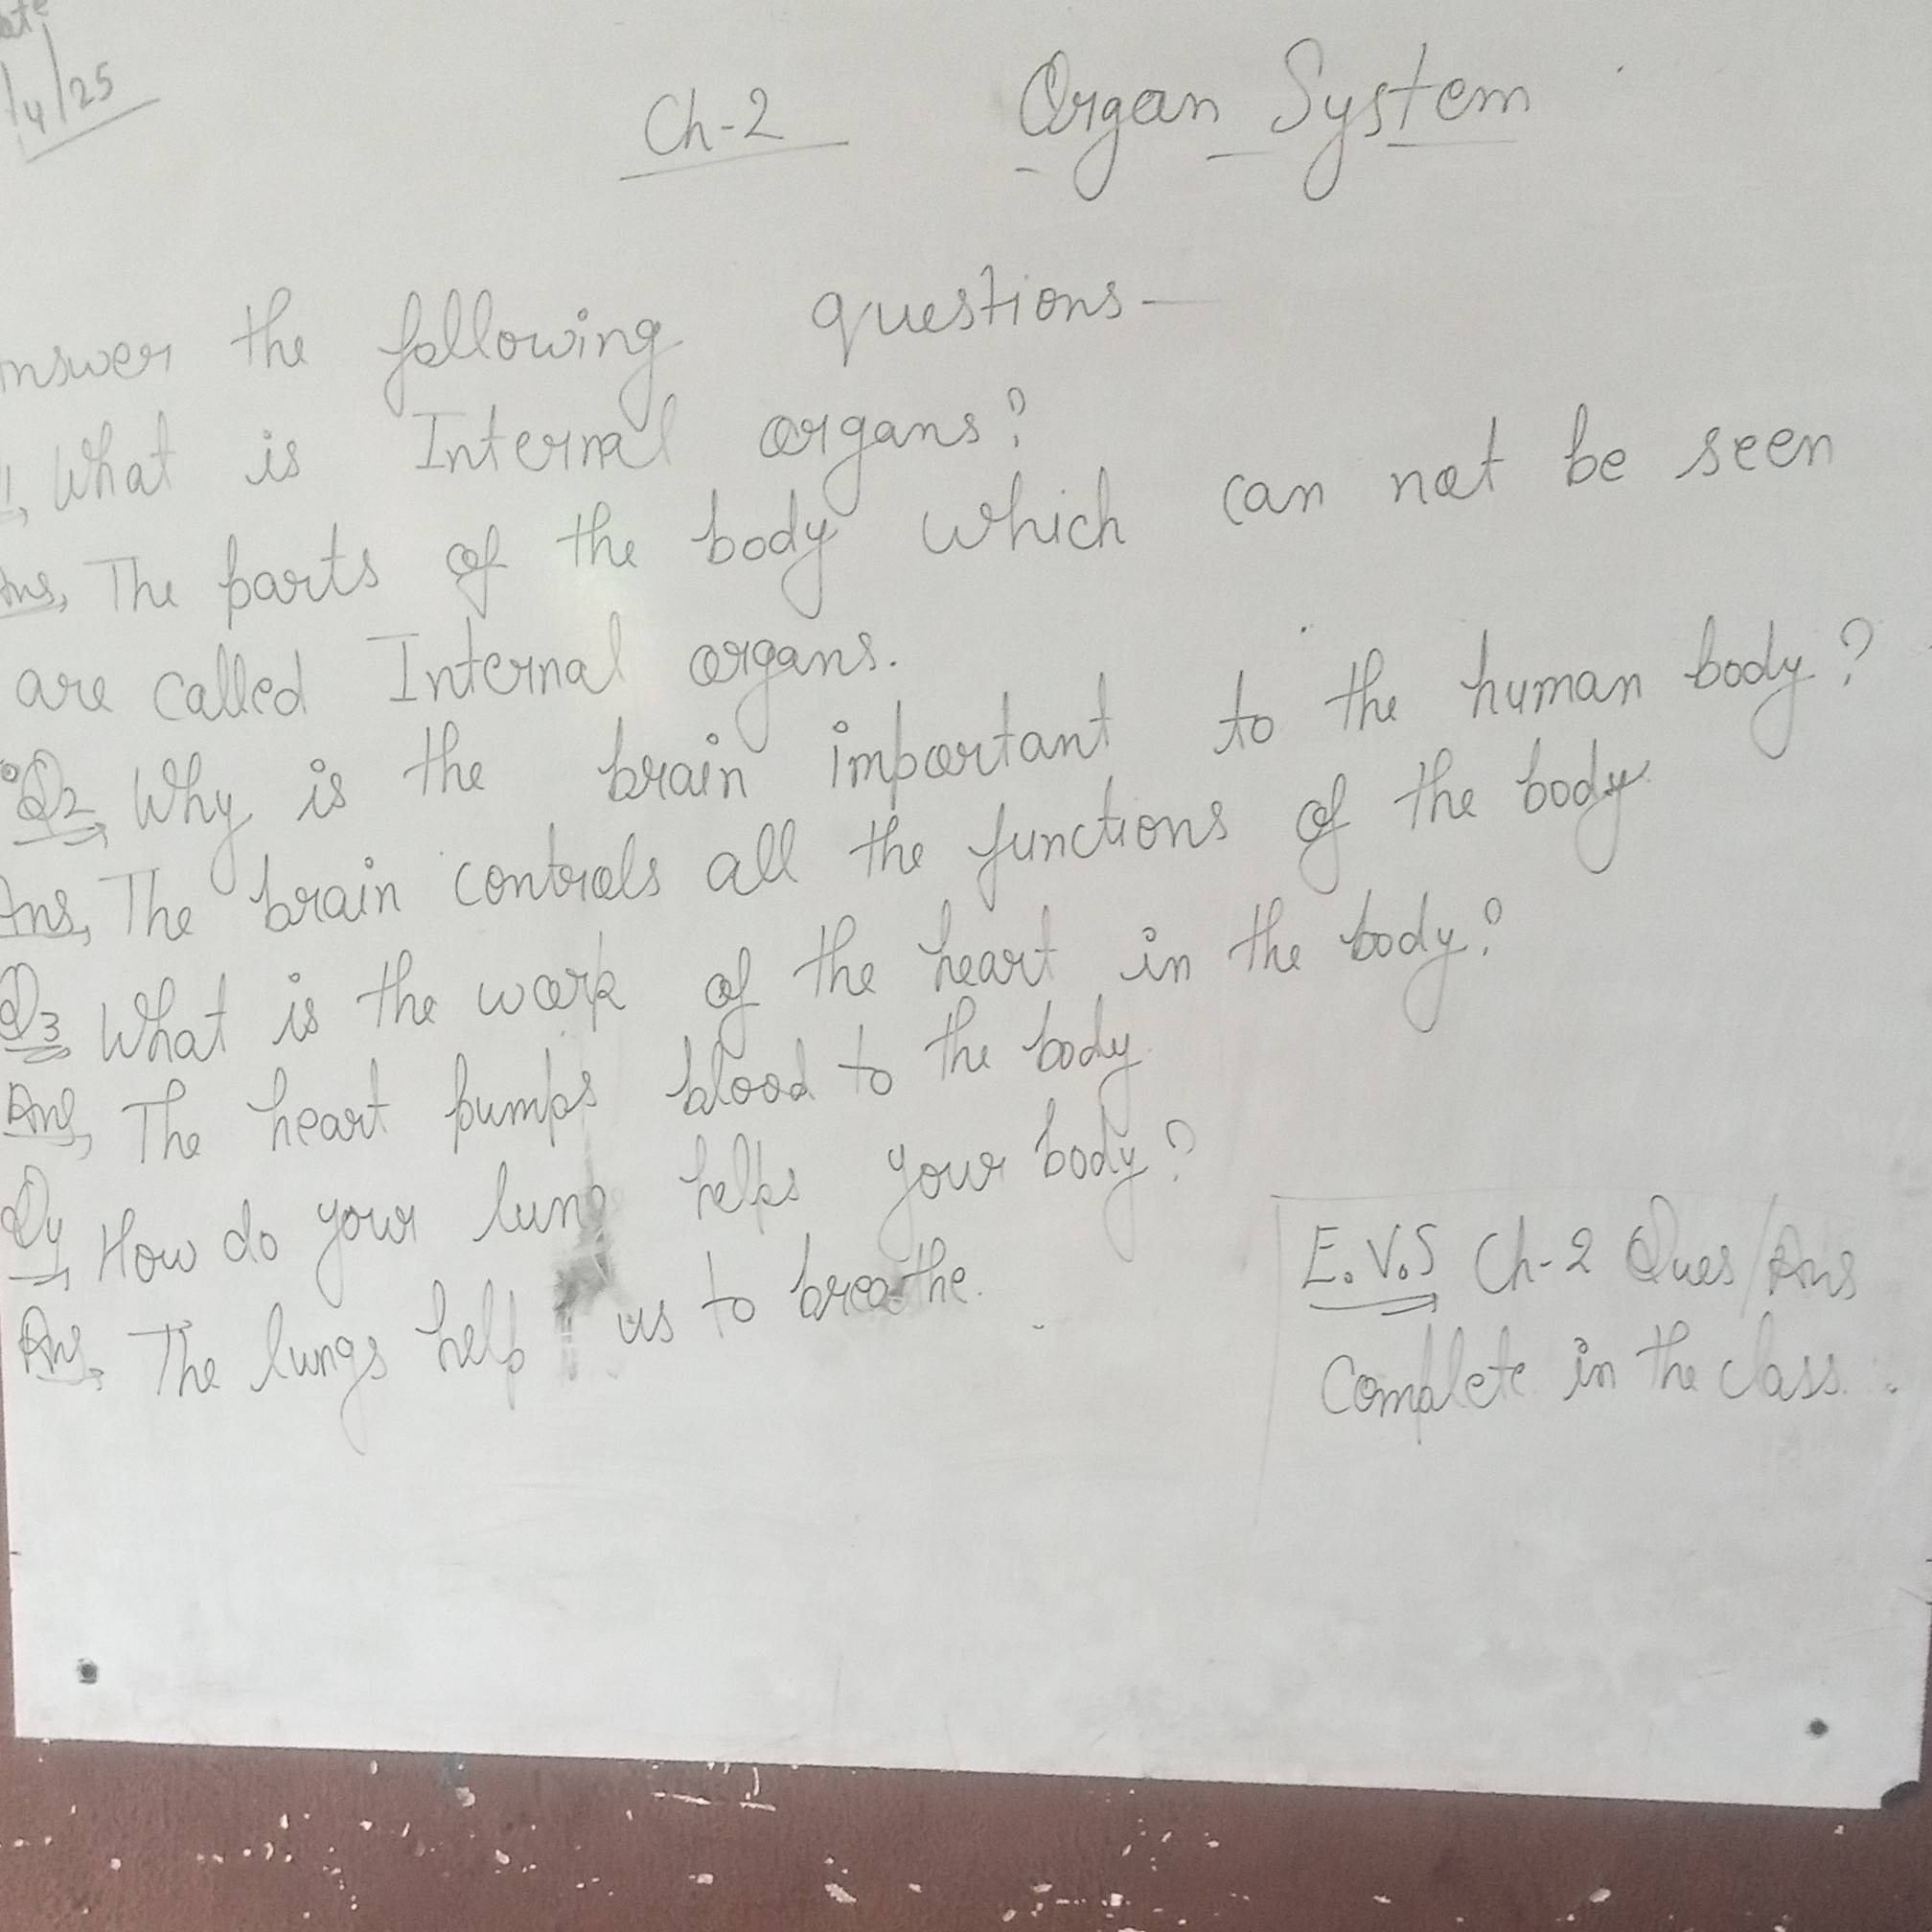 /4/25
Ch-2 Organ System
nswer the following questions-
What is Internal organs?
Ans, The parts of the body which can not be seen
are called Internal organs.
Q2, Why is the brain important to the human body?
Ans, The brain controls all the functions of the body.
Q3 What is the work of the heart in the body?
Ans, The heart pumps blood to the body.
Q4, How do your lung helps your body?
Ans, The lungs help us to breathe.
E.V.S Ch-2 Ques/Ans
Complete in the class.